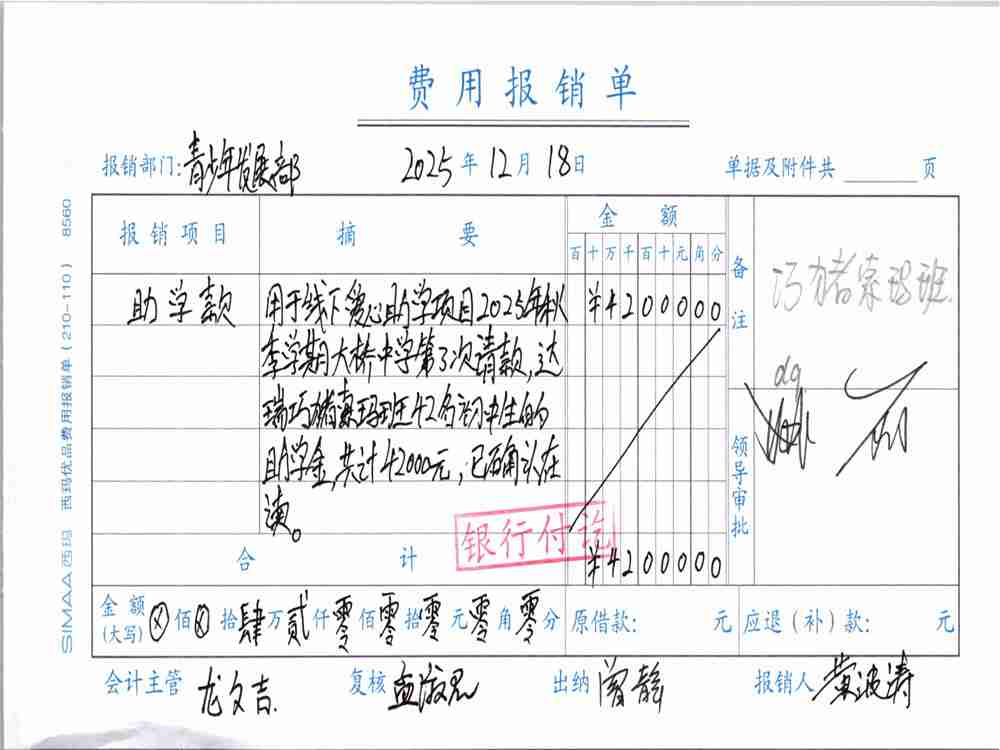 费用报销单
报销部门:青少年发展部 2025年12月18日 单据及附件共 页
报销项目 摘要 金额 备注
百十万千百十元角分
巧猪索玛班
助学款 用于线下爱心助学项目2025年秋 ¥4200000
季学期大桥中学第3次请款,达
瑞巧猪索玛班42名初中生的
助学金,共计42000元,已确认在
读。
领导审批
银行付讫
合计 ¥4200000
金额(大写) ⊗佰⊗拾肆万贰仟零佰零拾零元零角零分 原借款: 元 应退(补)款: 元
会计主管 龙文吉 复核 孟淑君 出纳 曾静 报销人 黄波涛
SIMAA西玛 西玛优品费用报销单(210-110) 8560